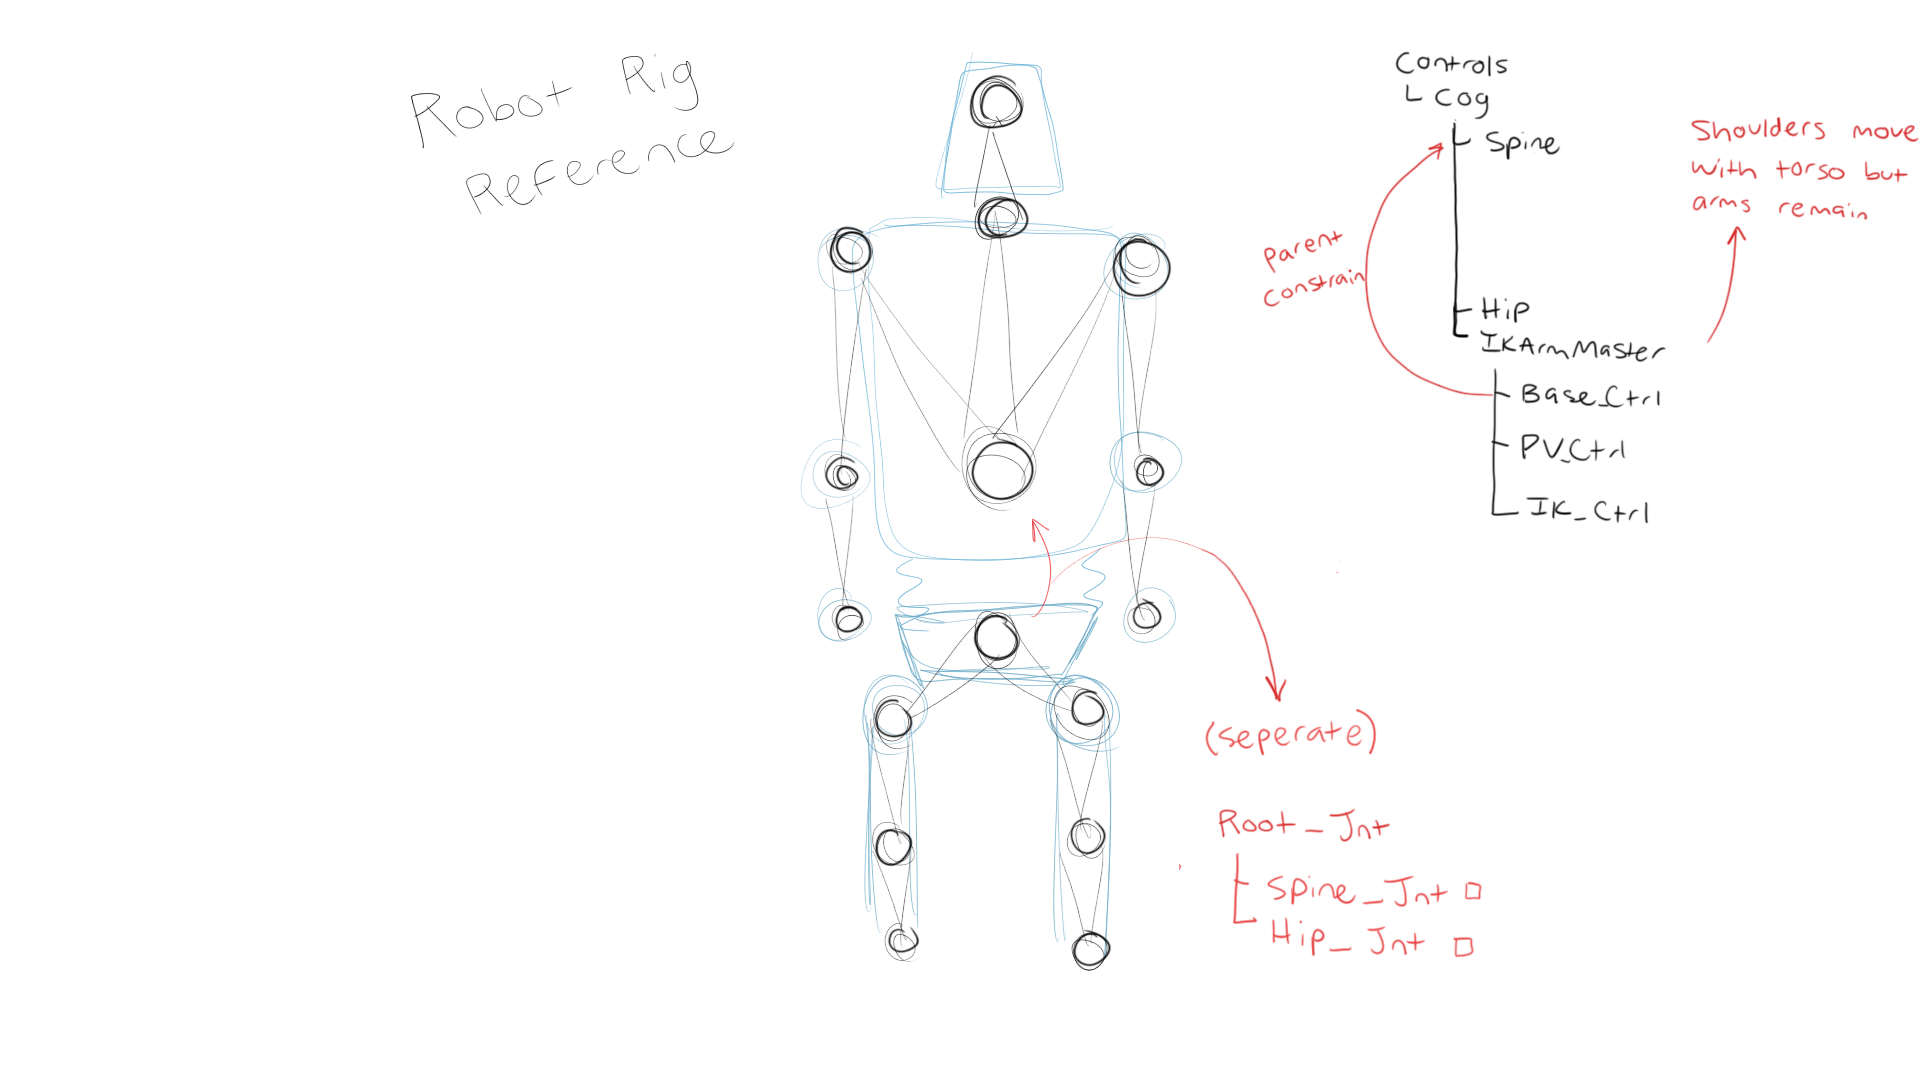 Robot Rig
Reference
Controls
Cog
Spine
Hip
IKArmMaster
Base_Ctrl
PV_Ctrl
IK_Ctrl
Parent
constrain
Shoulders move
with torso but
arms remain
(seperate)
Root_Jnt
Spine_Jnt
Hip_Jnt